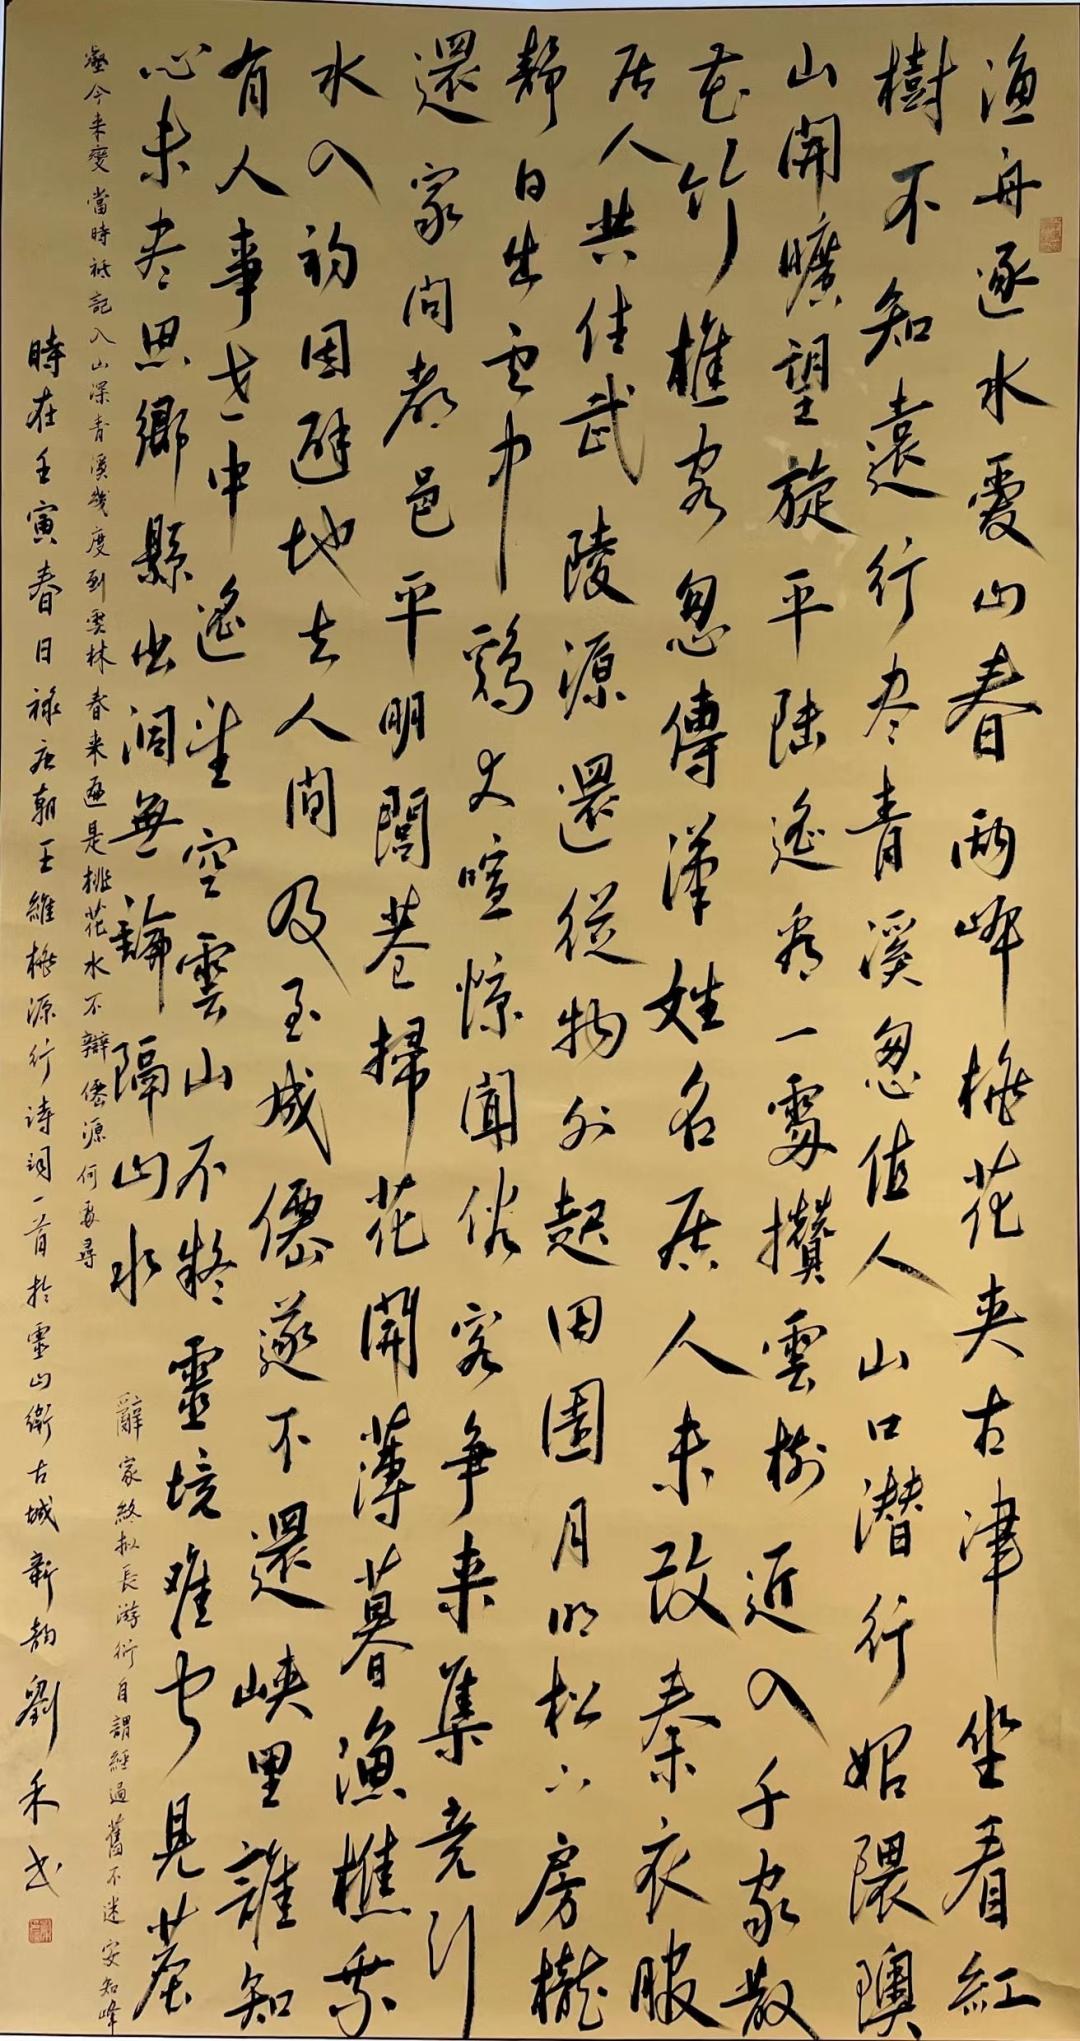 漁舟逐水愛山春兩岸桃花夾古津坐看紅
樹不知遠行尽青溪忽值人山口潛行始隈隩
山開曠望旋平陸遙看一處攢雲樹近入千家散
花竹樵客忽傳漢姓名居人未改秦衣服
居人共住武陵源還從物外起田園月明松下房櫳
靜日出雲中鷄犬喧惊聞俗客爭来集竞引
還家問都邑平明閭巷掃花開薄暮漁樵乘
水入初因避地去人間及至成僊遂不還峽里誰知
有人事世中遙望空雲山不疑靈境难聞見塵
心未尽思鄉縣出洞無論隔山水
辭家終拟長游衍自謂經過舊不迷安知峰
壑今来變當時衹記入山深青溪幾度到雲林春来遍是桃花水不辯僊源何處尋
時在壬寅春日祿唐朝王維桃源行诗词一首於靈山衛古城新韵劉禾书